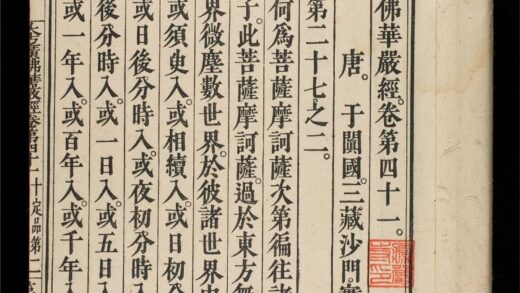 佛華嚴經。卷第四十一。
唐。于闐國。三藏沙門。
第二十七之二。
何爲菩薩摩訶薩次第徧往諸
子。此菩薩摩訶薩。過於東方無
界微塵數世界。於彼諸世界中
或須臾入。或相續入。或日初分
或日後分時入。或夜初分時入
後分時入。或一日入。或五日入
或一年入。或百年入。或千年入
廣佛華嚴經卷第四十一 十定品第二